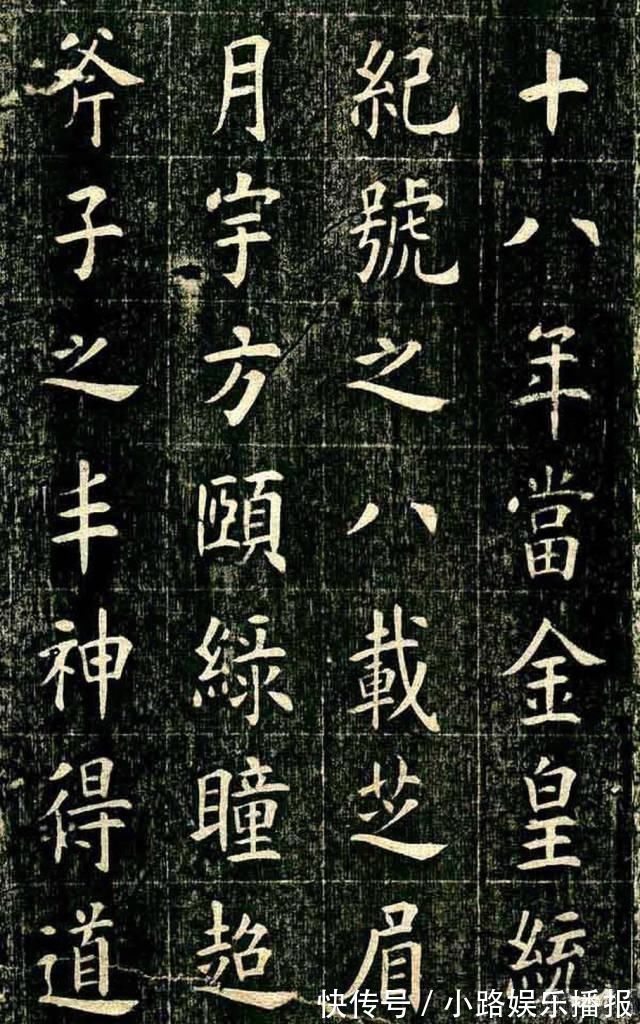 十八年當金皇統
紀號之八載芝眉
月宇方頤綠瞳超
斧子之丰神得道
快传号/小路娱乐播报